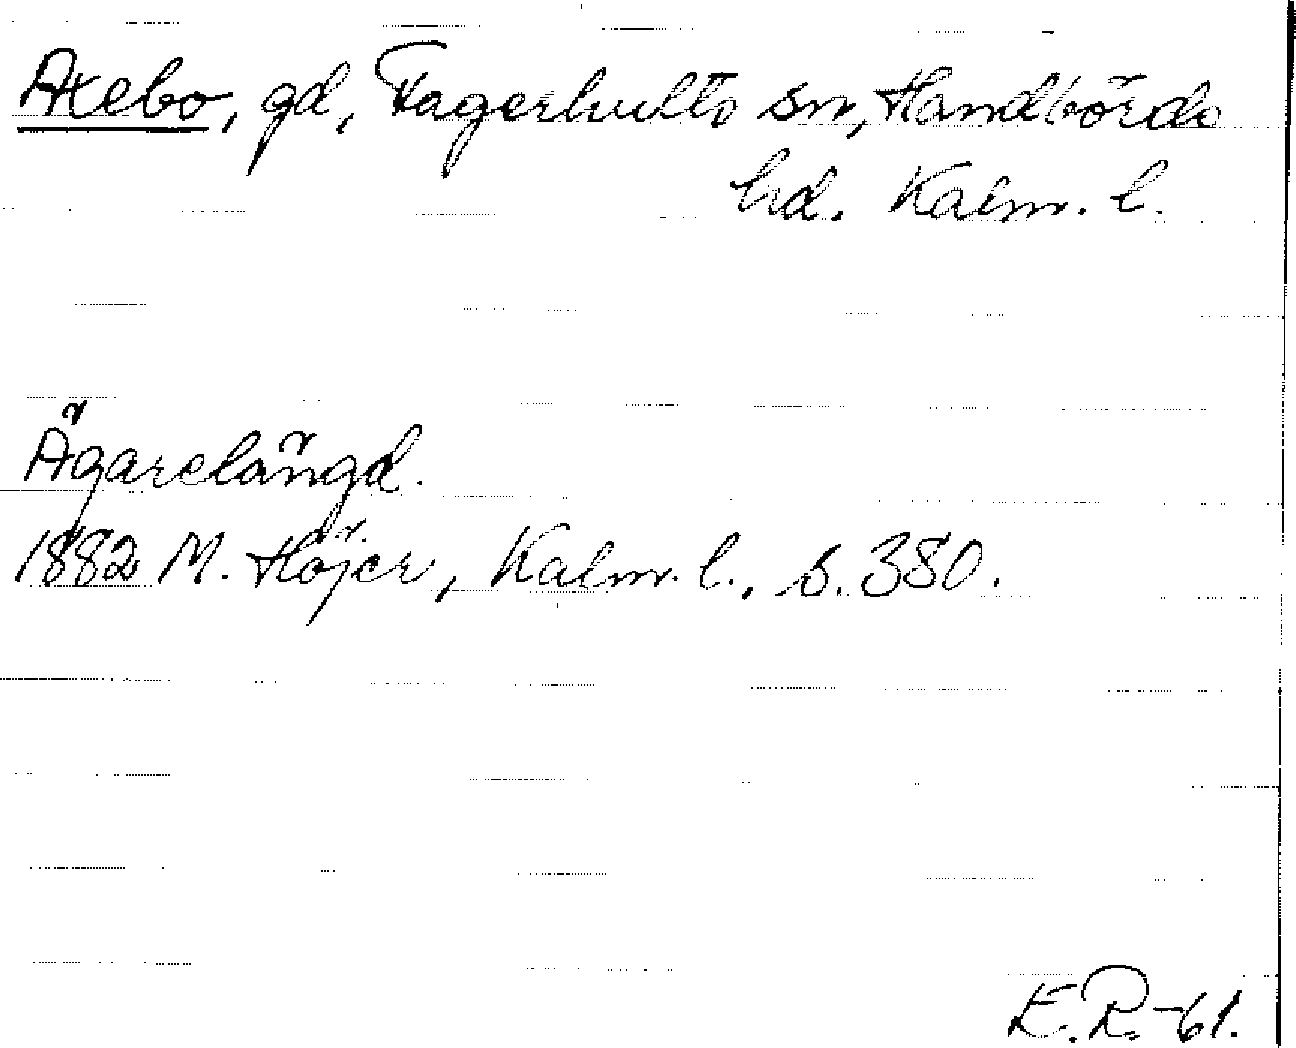 Axebo, gd, Fagerhults sn, Handbörds
hd. Kalm. l.
Ägarelängd.
1882 M. Höjer, Kalm. l., s. 380.
E.R.-61.